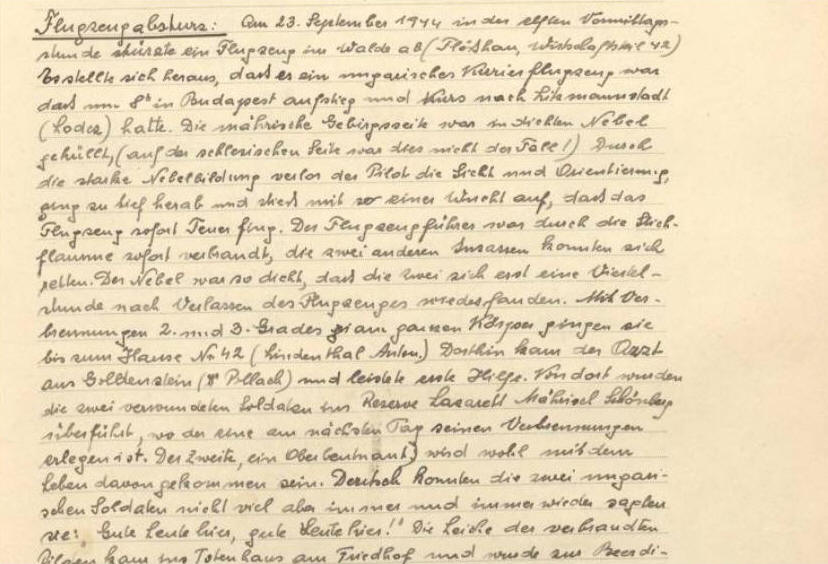 Flugzeugabsturz: Am 23. September 1944 in der elften Vormittags-
stunde stürzte ein Flugzeug im Walde ab (Flötshau, Wirtschaftsteil 42)
Es stellte sich heraus, dass es ein ungarisches Kurierflugzeug war
dass um 8h in Budapest aufstieg und Kurs nach Litzmannstadt
(Lodcz) hatte. Die mährische Gebirgsseite war in dichten Nebel
gehüllt, (auf der schlesischen Seite war dies nicht der Fall!) Durch
die starke Nebelbildung verlor der Pilot die Sicht und Orientierung,
ging zu tief herab und stiess mit so einer Wucht auf, dass das
Flugzeug sofort Feuer fing. Der Flugzeugführer war durch die Stich-
flamme sofort verbrandt, die zwei anderen Insassen konnten sich
retten. Der Nebel war so dicht, dass die zwei sich erst eine Viertel-
stunde nach Verlassen des Flugzeuges wiederfanden. Mit Ver-
brennungen 2. und 3. Grades am ganzen Körper gingen sie
bis zum Hause No 42 (Lindenthal Anton.) Dorthin kam der Arzt
aus Goldenstein (Dr Pollach) und leistete erste Hilfe. Von dort wurden
die zwei verwundeten Soldaten ins Reserve Lazarett Mährisch Schönberg
überführt, wo der eine am nächsten Tag seinen Verbrennungen
erlegen ist. Der Zweite, ein Oberleutnant) wird wohl mit dem
Leben davongekommen sein. Deutsch konnten die zwei ungari-
schen Soldaten nicht viel aber immer und immer wieder sagten
sie: „Gute Leute hier, gute Leute hier!" Die Leiche des verbrandten
Piloten kam ins Totenhaus am Friedhof und wurde zur Beerdi-